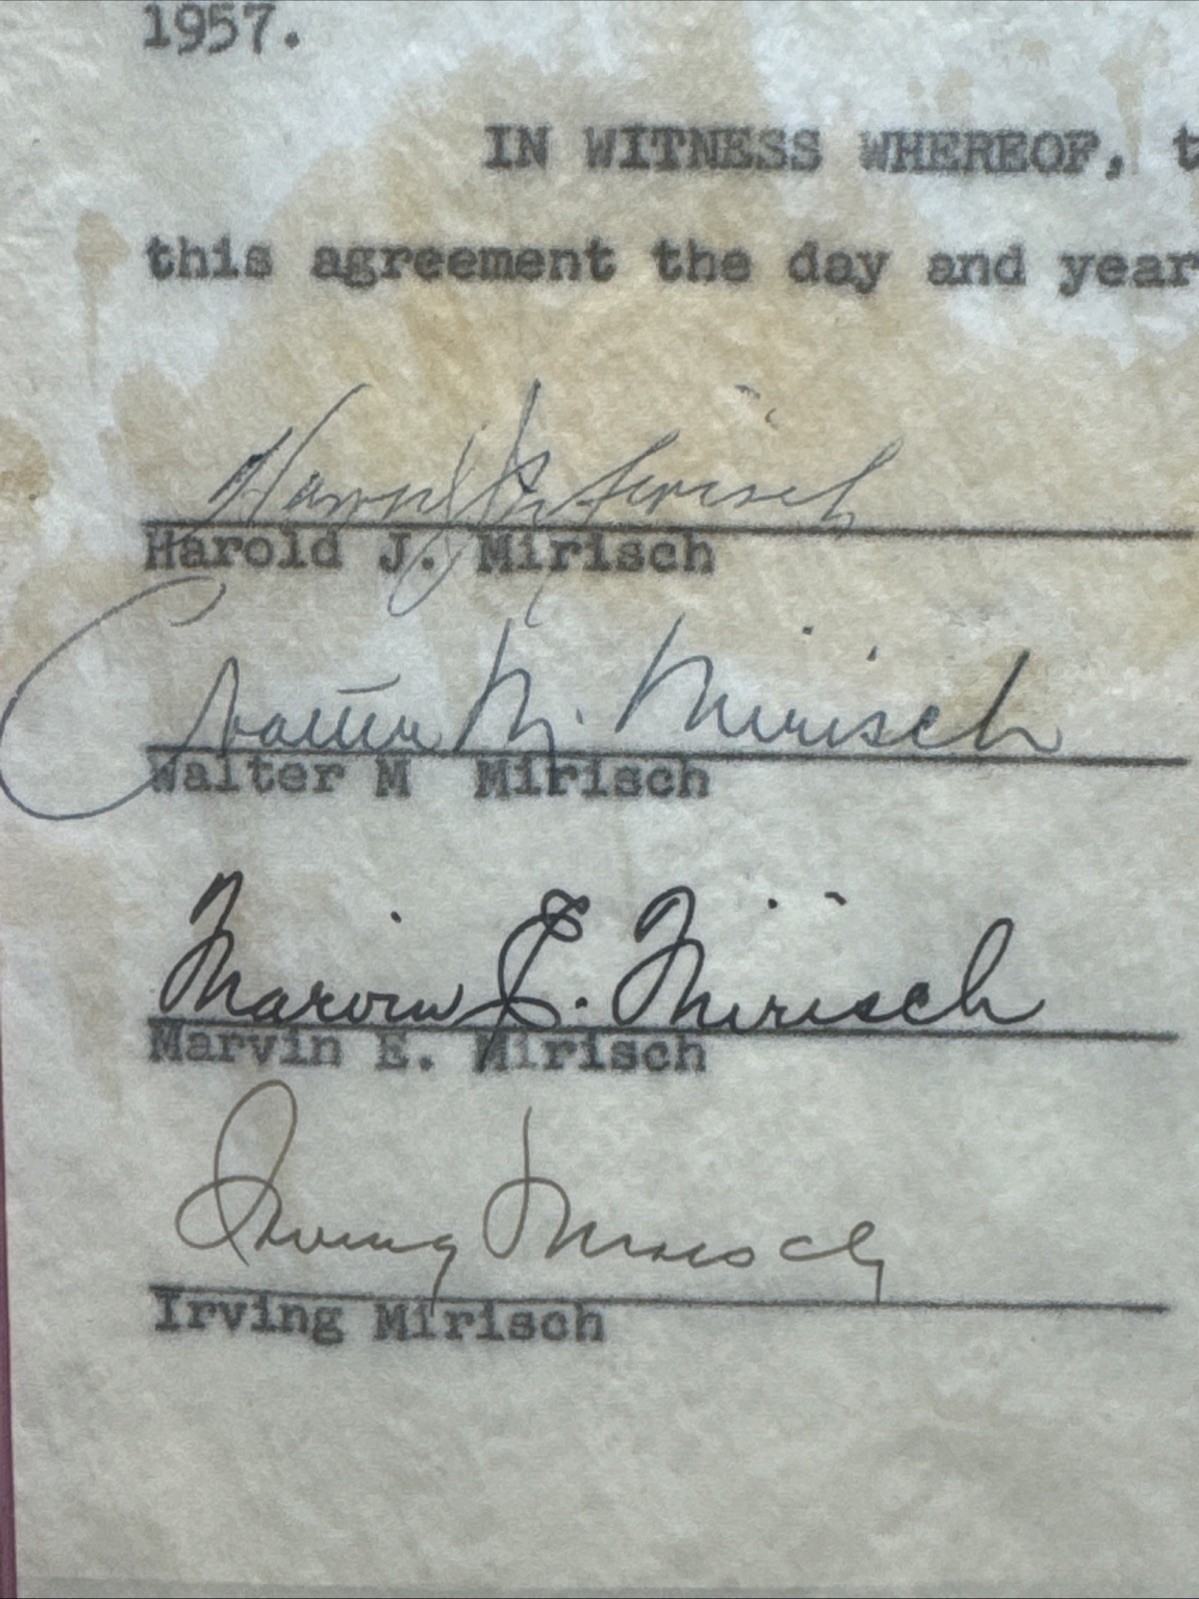 1957.
IN WITNESS WHEREOF, t
this agreement the day and year
Harold J. Mirisch
Harold J. Mirisch
Walter M. Mirisch
Walter M Mirisch
Marvin E. Mirisch
Marvin E. Mirisch
Irving Mirisch
Irving Mirisch